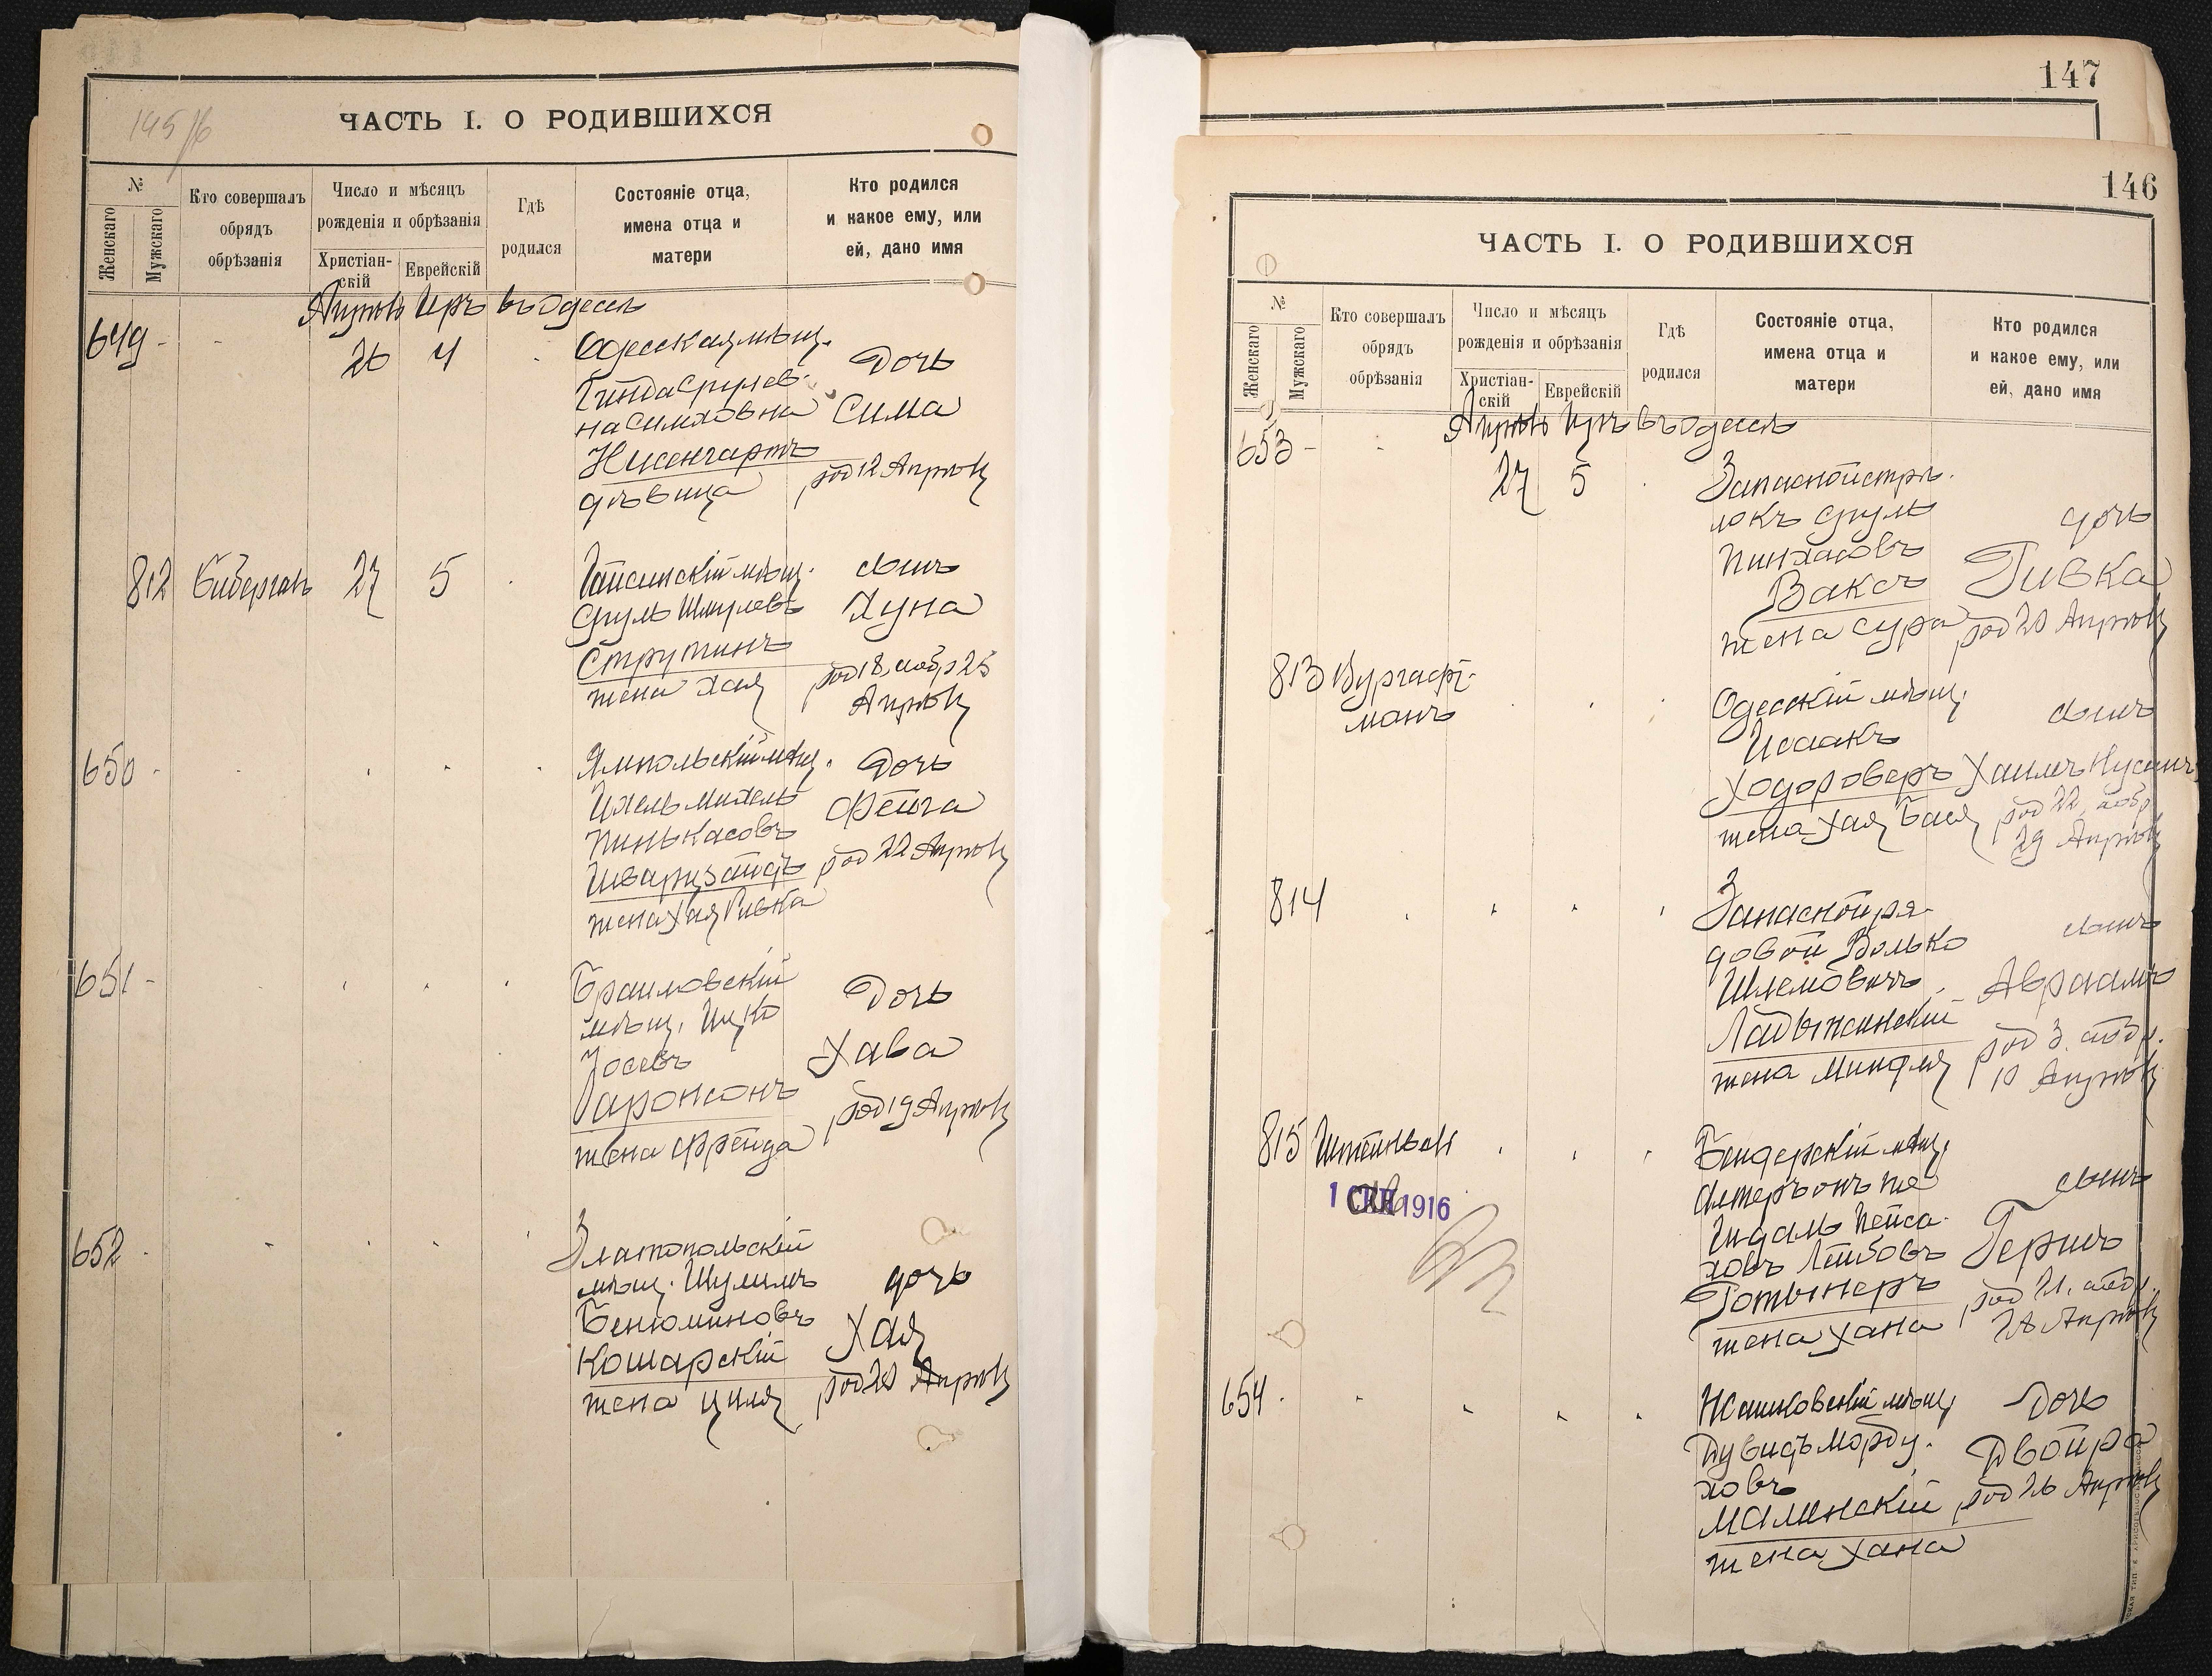 145/6
ЧАСТЬ I. О РОДИВШИХСЯ
№
Женскаго
Мужскаго
Кто совершалъ
обрядъ
обрѣзанія
Число и мѣсяцъ
рожденія и обрѣзанія
Христіан-
скій
Еврейскій
Гдѣ
родился
Состояніе отца,
имена отца и
матери
Кто родился
и какое ему, или
ей, дано имя
Апрѣль Иръ въ Одессѣ
649 -
26 4
Одесская мѣщ.
Гинда Срулев-
на Симховна
Нисенгартъ
дѣвица
Дочь
Сима
род 12 Апрѣля
812
27 5
Гайсинскій мѣщ.
Сруль Шмулевъ
Струтинъ
жена Хая
сынъ
Хуна
род 18, обр 25
Апрѣля
650 -
Ямпольскій мѣщ.
Ихель Михель
Пинькасовъ
Шварцзайдъ
жена Хая Ривка
Дочь
Фейга
род 22 Апрѣля
651 -
Браиловскій
мѣщ. Ицко
Іосевъ
Гаронсонъ
жена Фрейда
Дочь
Хава
род 19 Апрѣля
652 -
Златопольскій
мѣщ. Шулимъ
Бенюминовъ
Кошарскій
жена Циля
дочь
Хая
род 20 Апрѣля
147
146
ЧАСТЬ I. О РОДИВШИХСЯ
№
Женскаго
Мужскаго
Кто совершалъ
обрядъ
обрѣзанія
Число и мѣсяцъ
рожденія и обрѣзанія
Христіан-
скій
Еврейскій
Гдѣ
родился
Состояніе отца,
имена отца и
матери
Кто родился
и какое ему, или
ей, дано имя
Апрѣль Иръ въ Одессѣ
653 -
27 5
Запасной стрѣ-
локъ Сруль
Пинхасовъ
Ваксъ
жена Сура
дочь
Ривка
род 20 Апрѣля
813
Бургафт-
манъ
Одесскій мѣщ.
Исаакъ
Ходороверъ
жена Хая Бася
сынъ
Хаимъ Нусинъ
род 22, обр
29 Апрѣля
814
Запасной ря-
довой Волько
Шлемовичъ
Ладыжинскій
жена Миндля
сынъ
Авраамъ
род 3, обр.
10 Апрѣля
815
1 1916
Бендерскій мѣщ.
Алтеръ онъ же
Индаль Пейса-
ховъ Лейбовъ
Готынеръ
жена Хана
сынъ
Гершъ
род 21, обр.
28 Апрѣля
654 -
Жашковскій мѣщ.
ДувидъМорду-
ховъ
Малинскій
жена Хана
Дочь
Двойра
род 26 Апрѣля